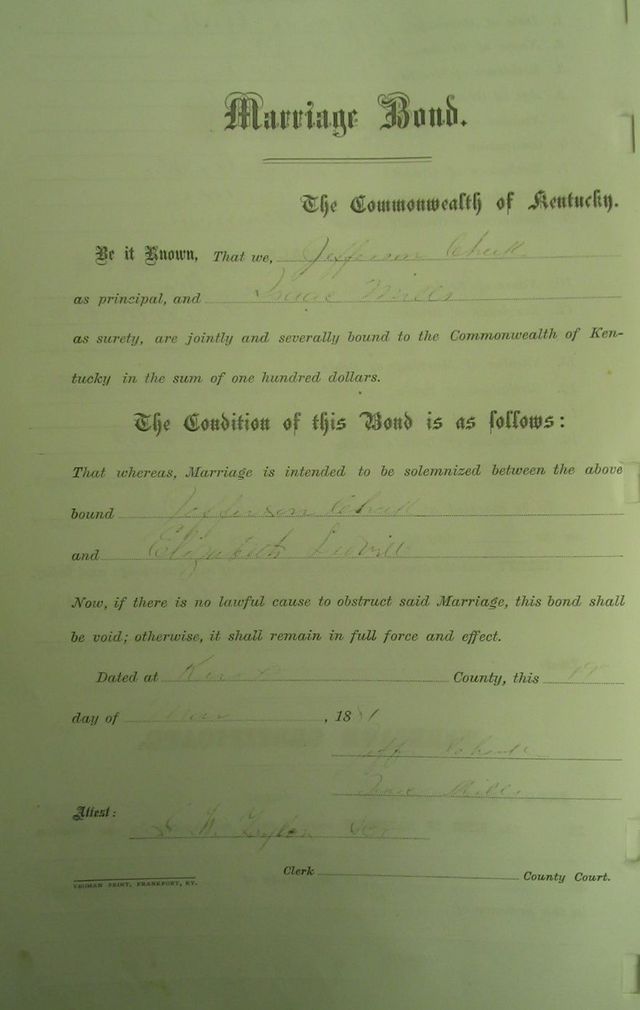 Marriage Bond.
The Commonwealth of Kentucky.
Be it Known, That we, Jefferson
as principal, and Isaac Mills
as surety, are jointly and severally bound to the Commonwealth of Ken-
tucky in the sum of one hundred dollars.
The Condition of this Bond is as follows:
That whereas, Marriage is intended to be solemnized between the above
bound Jefferson
and Elizabeth
Now, if there is no lawful cause to obstruct said Marriage, this bond shall
be void; otherwise, it shall remain in full force and effect.
Dated at County, this
day of , 18
Jeff
Isaac Mills
Attest:
Clerk County Court.
YEOMAN PRINT, FRANKFORT, KY.